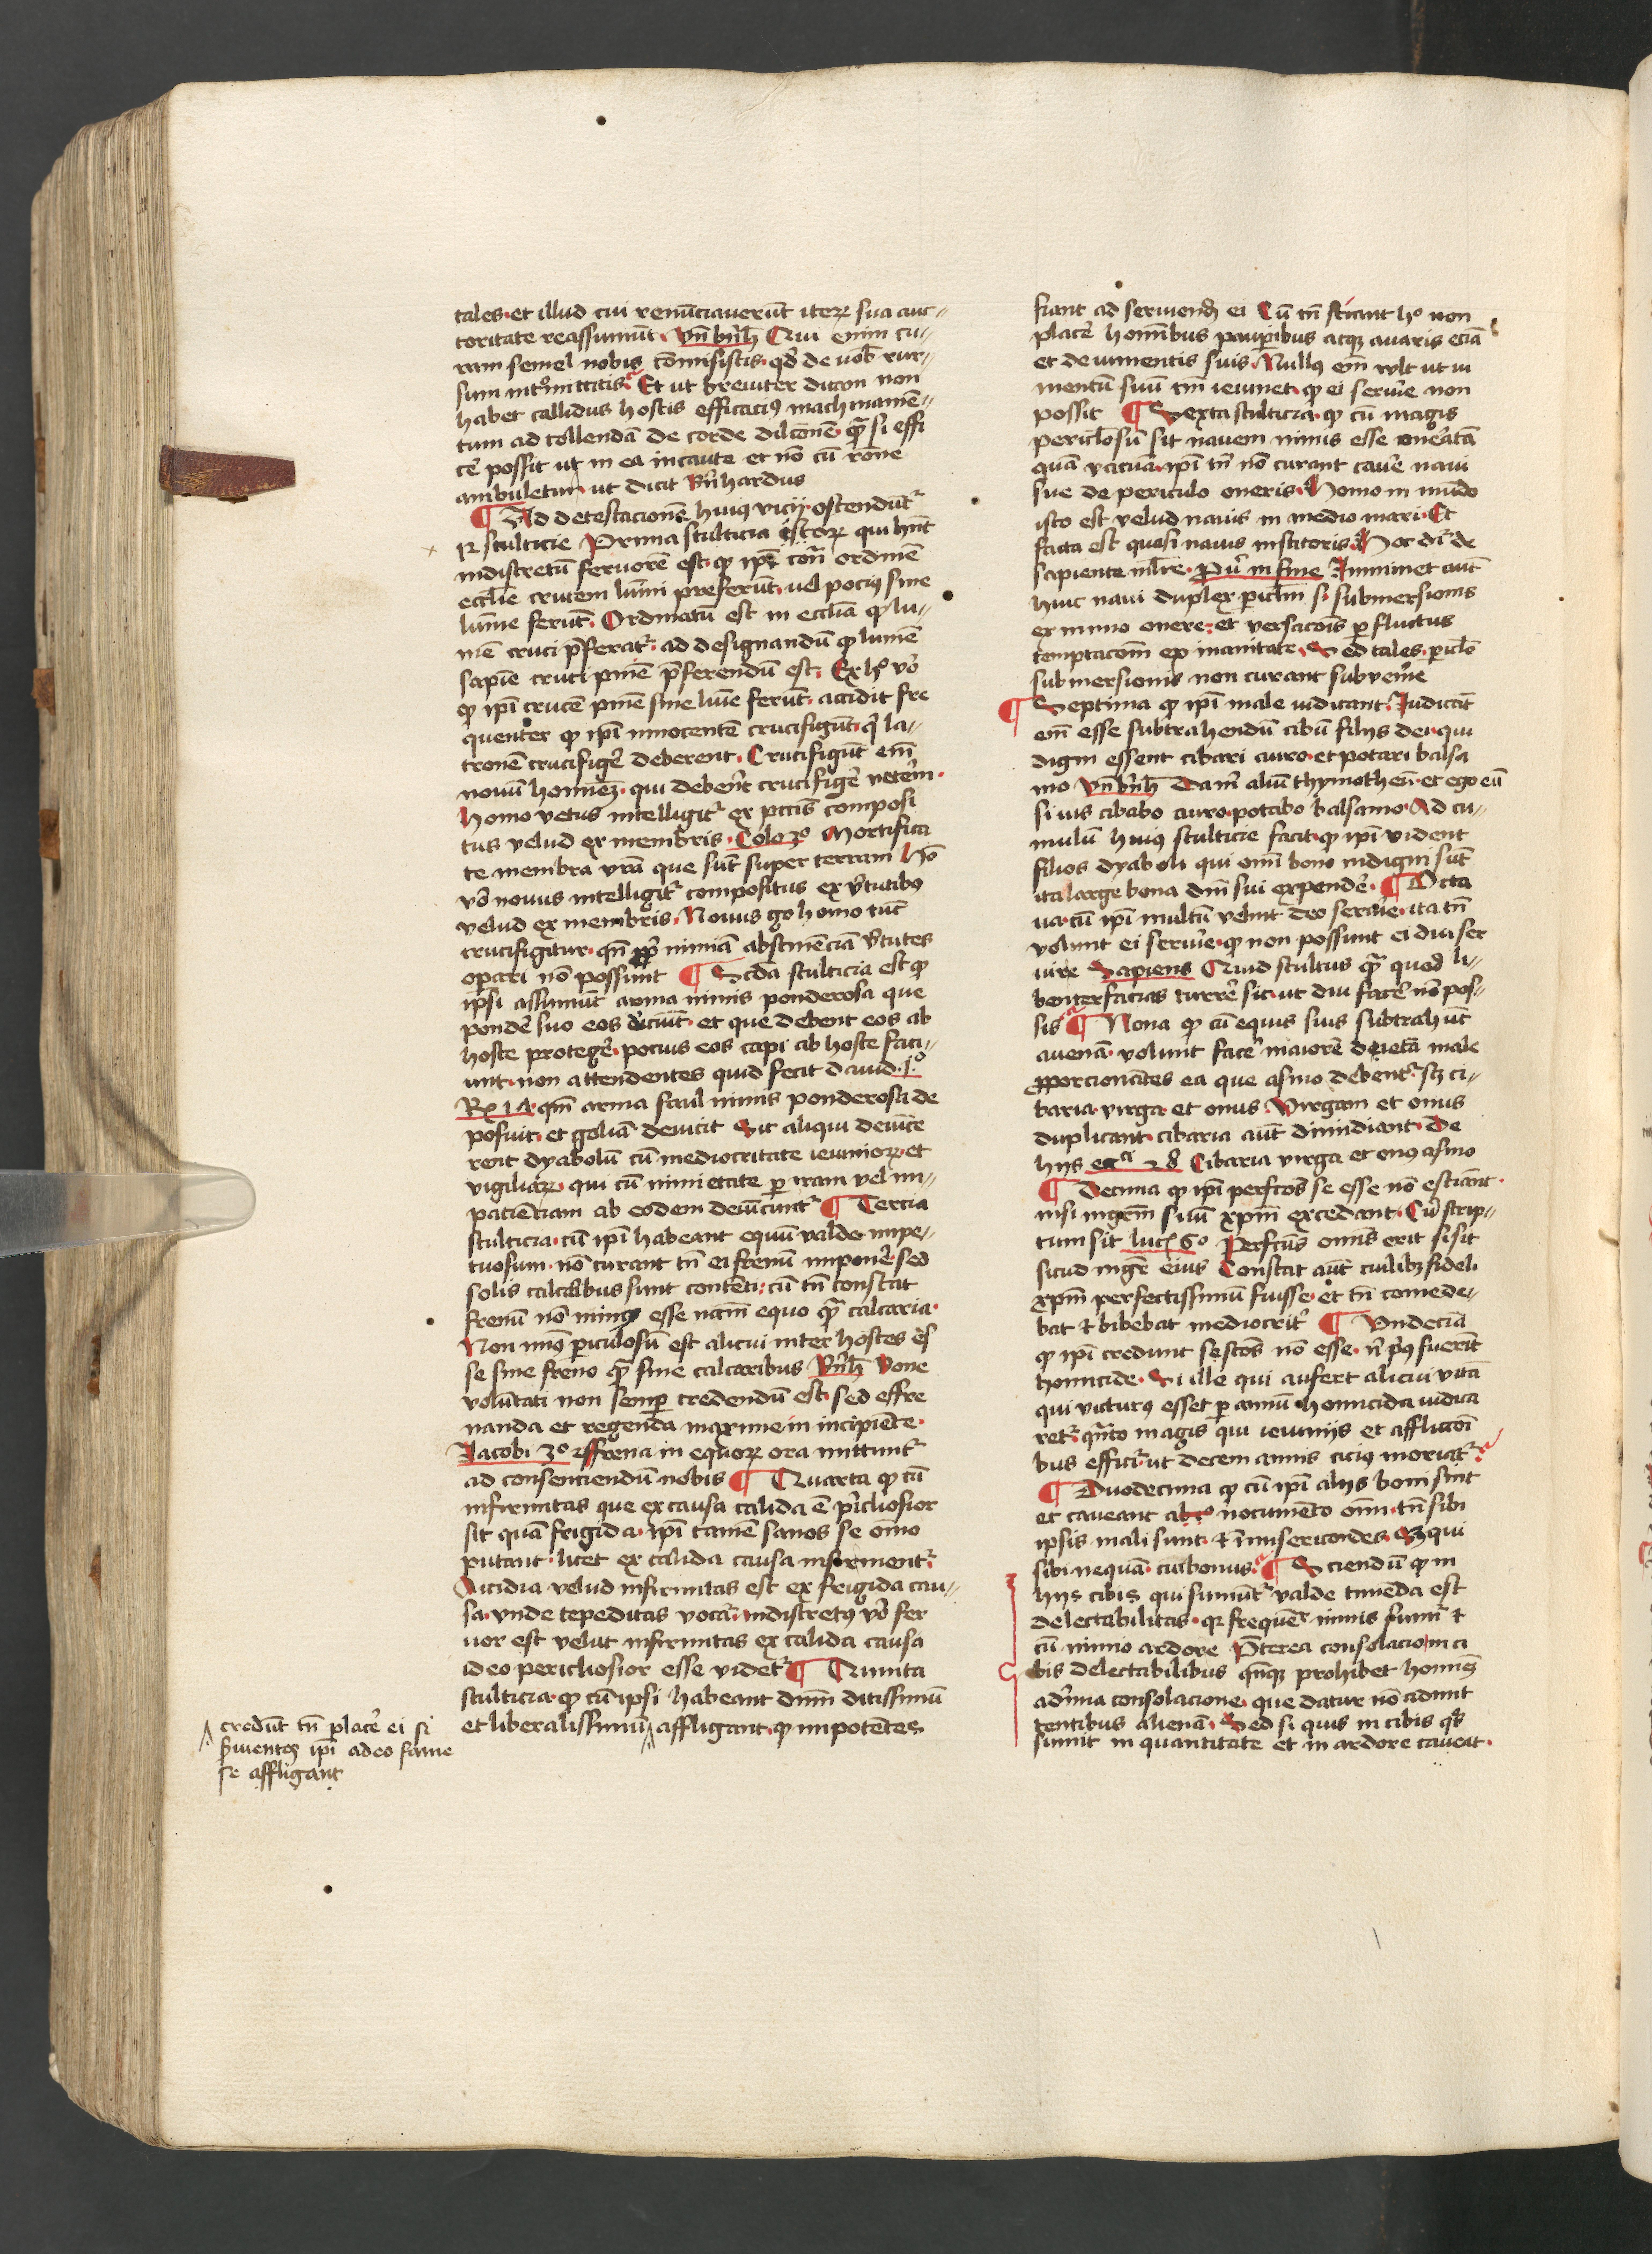 tales et illud cui renu̅ciaveru̅t iteꝝ sua auc-
toritate reassumu̅t. Vn̅ bn̅h Qui enim cu-
ram semel nobis co̅misistis qd̓ de vob̅ rur-
sum int͛mittitis Et ut breuiter dicam non
habet callidus hostis efficaciꝰ machname̅-
tum ad tollenda̅ de corde dilc̅one̅ qᷓ si effi
ce̓ possit ut in ea incaute et no̅ cu̅ ro̅ne
ambuletur ut dicit b̅nhardus
¶ Ad detestacione̅ huiꝰ vicij ostendu̅t᷑
12 stulticie Prima stulticia istoꝝ qui hn̅t
indiscretu̅ feruore̅ est ꝙ ip̅i cont̅ ordine̅
eccl̅ie crucem lum̅i preferu̅t uel pociꝰ sine
lum̅e feru̅t. Ordinatu̅ est in eccl̅ia ꝙ lu-
me̅ cruci p̅ferat᷑ ad designandu̅ ꝙ lume̅
sapie̅ cruci pn̅ie p̅ferendu̅ est. Ex hͦ vo̓
ꝙ ip̅i cruce̅ pn̅ie sine lum̅e feru̅t accidit fre
quenter ꝙ ip̅i innocente̅ crucifigu̅t qͥ la-
trone̅ crucifige̓ deberent. Crucifigu̅t em̅
nouu̅ homine̅ qui debere̅t crucifige̓ vete̓m.
homo vetus intelligit᷑ ex pcc̅is composi
tus velud ex membris. Colo 3º Mortifica
te membra vr̅a que su̅t super terram ho̅
vo̓ nouus intelligit᷑ compositus ex v̓tutibꝰ
velud ex membris. Nouus gͦ homo tu̅c
crucifigitur qn̅ ꝓp̅ nimia̅ abstine̅cia̅ v̓tutes
operari no̅ possunt ¶ Sc̅da stulticia est ꝙ
ipsi assumu̅t arma nimis ponderosa que
ponde̓ suo eos deiciu̅t et que debent eos ab
hoste protege̓ pocius eos capi ab hoste faci-
unt non attendentes quid fecit dauid. jº
Rx 14 qm̅ arma saul nimis ponderosa de
posuit et golia̅ deuicit Sic aliqui deui̅ce
rent dyabolu̅ cu̅ mediocritate ieiunioꝝ et
vigiliaꝝ qui cu̅ nimietate ꝑ iram vel im-
pacie̅tiam ab eodem deui̅cunt᷑ ¶ Tercia
stulticia cu̅ ip̅i habeant equu̅ valde impe-
tuosum no̅ curant tn̅ ei frenu̅ impone̓ sed
solis calcaribus sunt conte̅ti cu̅ tn̅ constat
frenu̅ no̅ minꝰ esse nc̅m equo qᷓ calcaria
Non minꝰ ꝑiculosu̅ est alicui inter hostes e̅s
se sine freno qᷓ sine calcaribus bn̅h bone
volu̅tati non semꝑ credendu̅ est sed effre
nanda et regenda maxime in incipie̅te.
Jacobi 3º Si frena in equoꝝ ora mittunt᷑
ad consenciendu̅ nobis ¶ Quarta ꝙ cu̅
infirmitas que ex causa calida e̅ p̓iclosior
sit qua̅ frigida ip̅i tame̅ sanos se om̅o
putant licet ex calida causa infirment᷑
Accidia velud infirmitas est ex frigida cau-
sa vnde tepeditas vocat᷑ indiscretꝰ vo̓ fer
uor est velut infirmitas ex calida causa
ideo periclosior esse videt᷑ ¶ Quinta
stulticia ꝙ cu̅ ipsi habeant dn̅m ditissimu̅
et liberalissimu̅ affligant ꝙ impote̅tes
credu̅t tn̅ place̓ ei si
s̓uientes ip̅i adeo fame
se affligant
fiant ad seruiend̅ ei Cu̅ tn̅ sciant hͦ non
place̓ hominibus pauꝑibus atqꝫ auaris ecia̅
et de iumentis suis. Nullꝰ em̅ vult ut iu
mentu̅ suu̅ tm̅ ieiunet ꝙ ei serui̓e non
possit ¶ Sexta stulticia ꝙ cu̅ magis
periclosu̅ sit nauem nimis esse one̓ata̅
qua̅ vacua̅ ip̅i tn̅ no̅ curant caue̓ naui
sue de periculo oneris. Homo in mu̅do
isto est velud nauis in medio mari. Et
facta est quasi nauis institoris. Hoc dr̅ de
sapiente mlr̅e. Pu̓ in fine Imminet aut̅
huic naui duplex ꝑiclm̅ si submersionis
ex nimio onere et versacio̅is ꝑ fluctus
temptaco̅m ex inanitate. Sed tales ꝑiclo̅
submersionis non curant subueni̓e
¶ Septima ꝙ ip̅i male iudicant. Iudica̅t
em̅ esse subtrahendu̅ cibu̅ filijs dei qui
digni essent cibari auro et potari balsa
mo Vn̅ bn̅h Da m̅ aliu̅ thymotheu̅ et ego eu̅
si uis cibabo auro potabo balsamo. Ad cu-
mulu̅ huiꝰ stulticie facit ꝙ ip̅i vident
filios dyaboli qui om̅i bono indigni su̅t
ita large bona dn̅i sui expende̓. ¶ Octa
ua cu̅ ip̅i multu̅ velint deo serui̓e ita tn̅
volunt ei serui̓e ꝙ non possunt ei diu ser
uire Sapiens Quid stultus qᷓ quod li-
benter facias curre̓ sic ut diu face̓ no̅ pos-
sis ¶ Nona ꝙ cu̅ equis suis subtrahu̅t
auena̅ volunt face̓ maiore̅ dieta̅ male
ꝓporciona̅tes ea que asino debent᷑ scꝫ ci-
baria virga et onus. Virgam et onus
duplicant cibaria aut̅ dimidiant. De
hijs ecaͥ 28 Cibaria virga et onꝰ asino
¶ Decima ꝙ ip̅i perfc̅os se esse no̅ estima̅t
nisi mgr̅m suu̅ xp̅m excedant. Cu̅ scrip-
tum sit luc 6º Perfc̅us omis erit si sit
sicud mgr̅ eius Constat aut̅ cuilibꝫ fideli
xp̅m perfectissimu̅ fuisse et tn̅ comede-
bat ⁊ bibebat mediocrit᷑ ¶ Undecia̅
ꝙ ip̅i credunt se sc̅os no̅ esse n̅ pͥꝰ fueri̅t
homicide. Si ille qui aufert alicui vita̅
qui victurꝰ esset ꝑ annu̅ homicida iudica
ret᷑ qᷓnto magis qui ieiunijs et afflicco̅i
bus efficit᷑ ut decem annis cicius moriat᷑
¶ Duodecima ꝙ cu̅ ip̅i alijs boni sint
et caueant ab eoꝝ nocume̅to om̅i tn̅ sibi
ipsis mali sunt ⁊ i̅misericordes. Qui
sibi nequa̅ cui bonus ¶ Sciendu̅ ꝙ in
hijs cibis qui sumu̅t᷑ valde time̅da est
delectabilitas qꝛ freque̅r nimis sumit᷑ ⁊
cu̅ nimio ardore P̅terea consolacio in ci
bis delectabilibus qn̅qꝫ prohibet homi̅es
a diuina consolacione que datur no̅ admit
tentibus aliena̅. Sed si quis in cibis qͥbꝰ
sumit in quantitate et in ardore caueat.